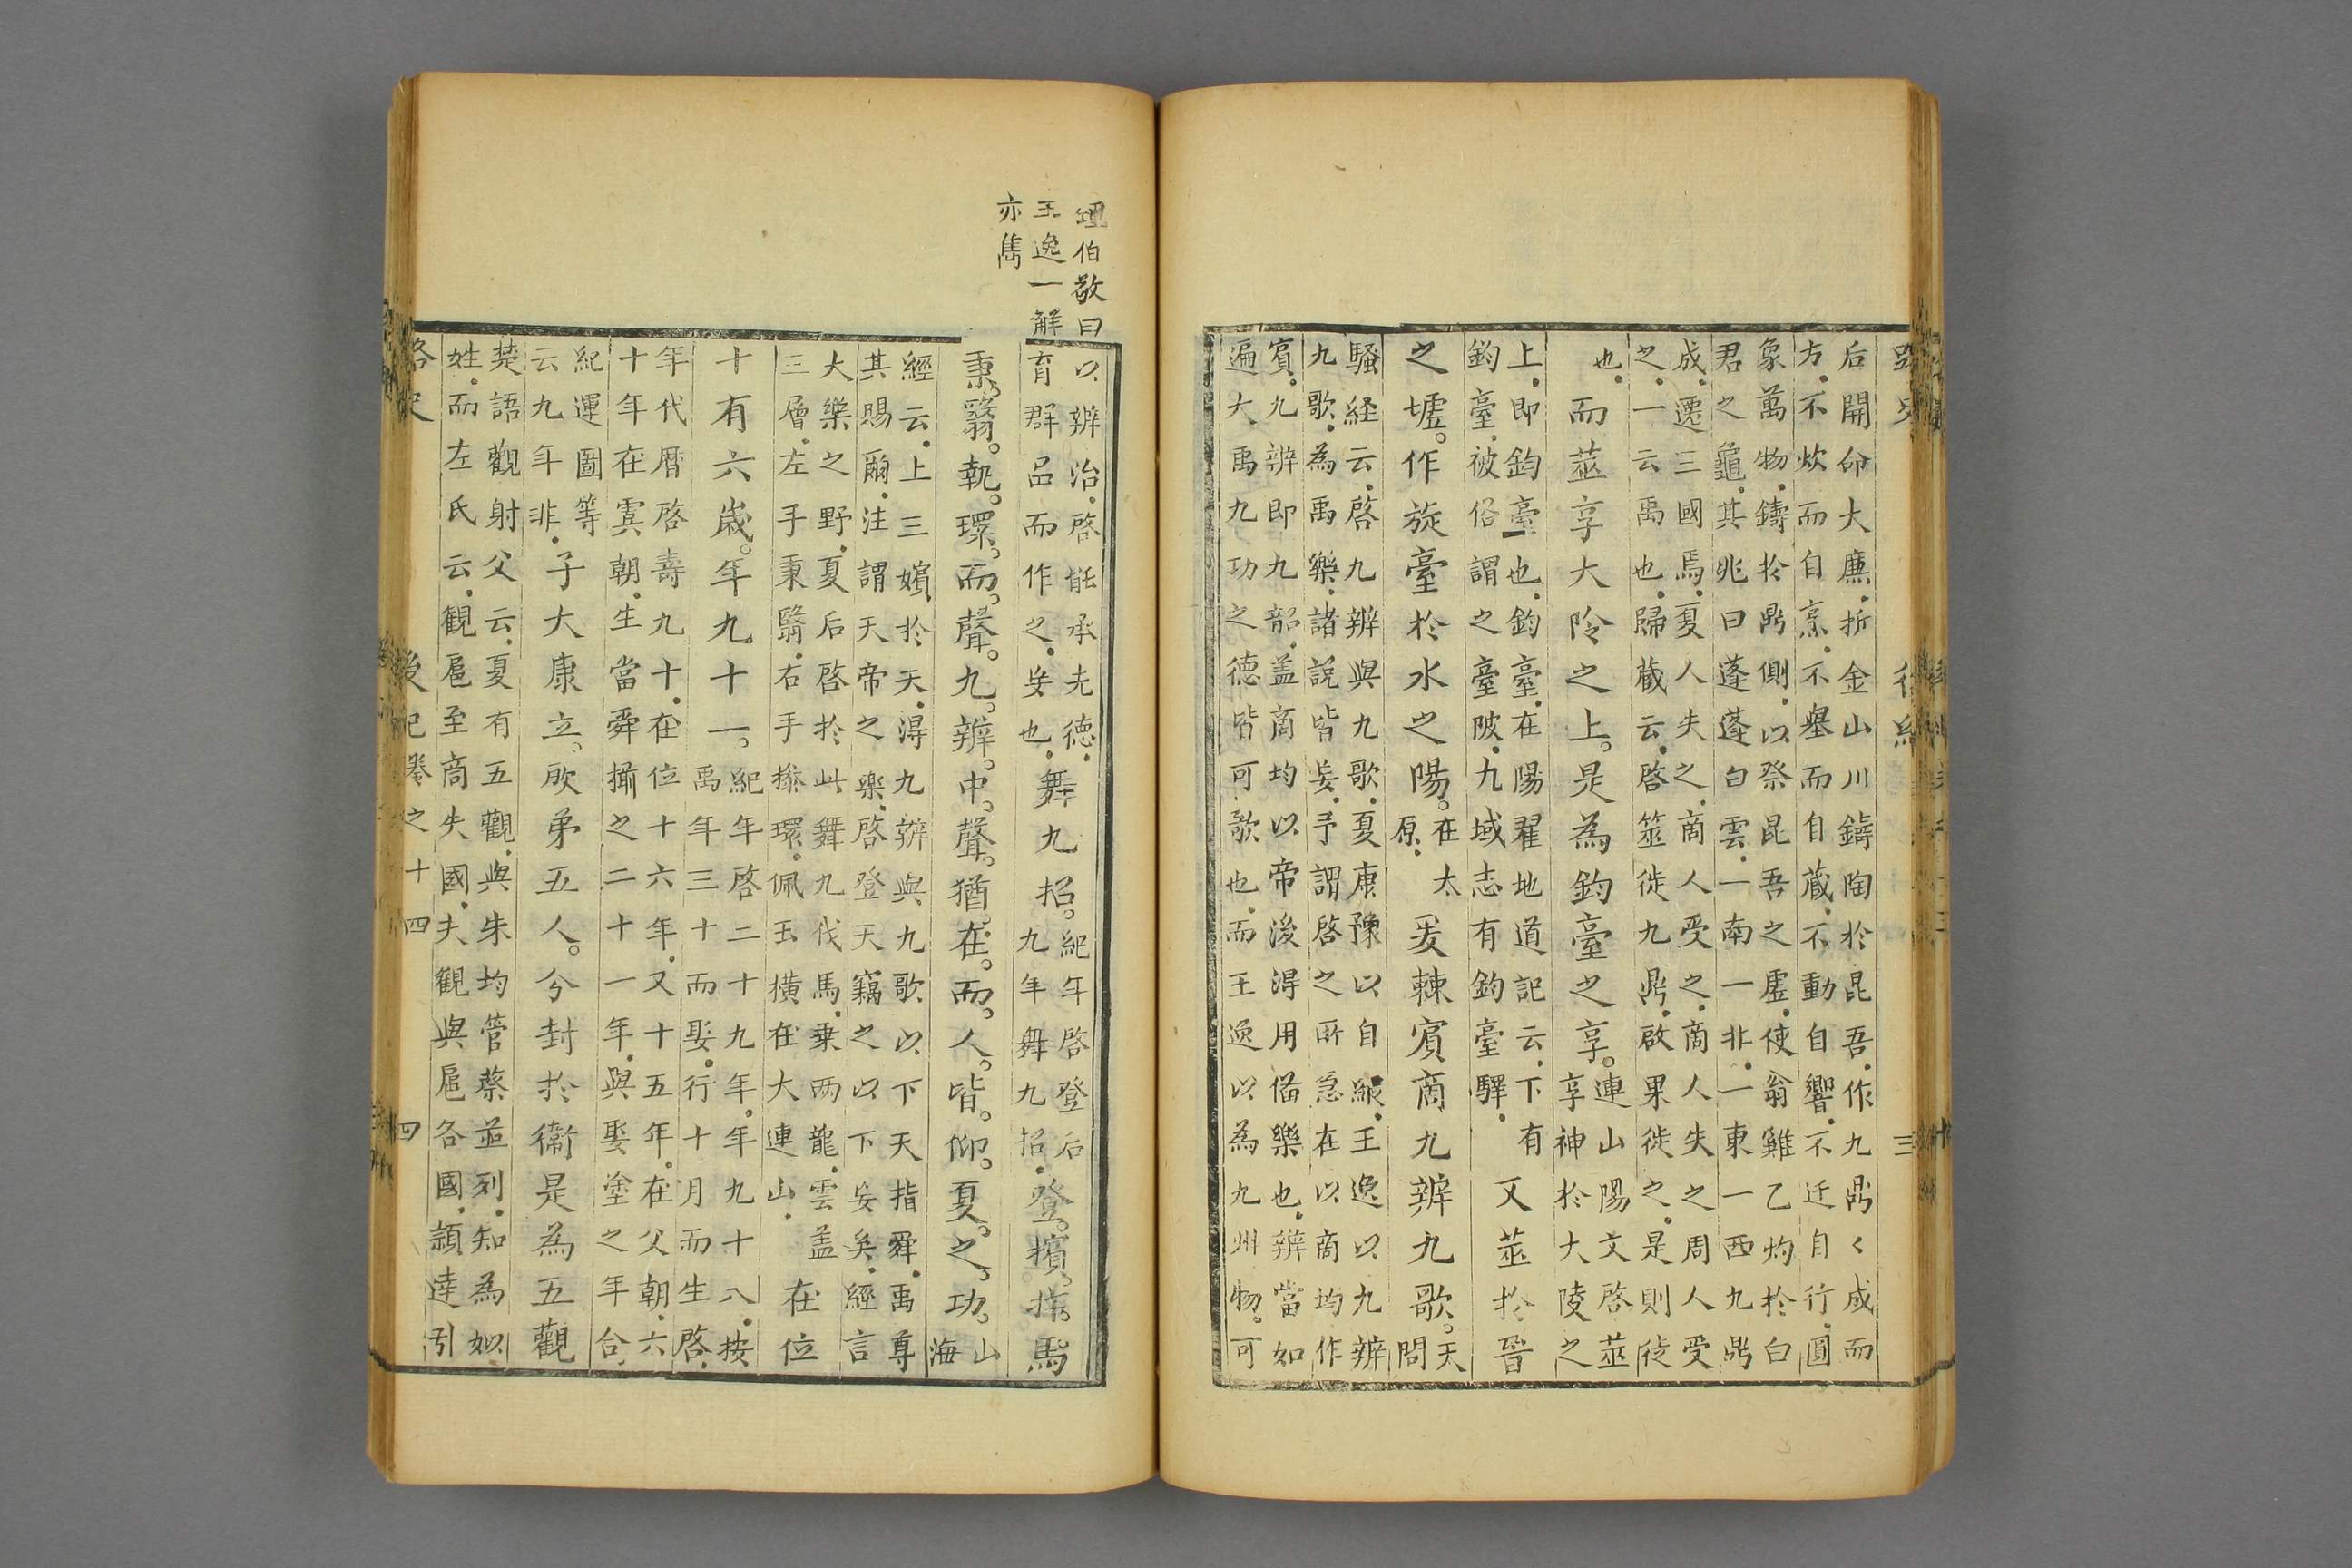 后開命大廉折金山川鑄陶於昆吾作九鼎〻成而
方不炊而自烹不舉而自蔵不動自響不迁自行圓
象萬物鑄於鼎側以祭昆吾之墟使翁雞乙灼於白
君之龜其兆曰蓬蓬白雲一南一非一東一西九鼎
成遷三國焉夏人失之商人受之商人失之周人受
之一云禹也歸蔵云啓筮徙九鼎啟果徙之是則徙
也而莁享大陵之上是為鈞臺之享
連山陽文啓莁
享神於大陵之
上即鈞臺也鈞臺在陽翟地道記云下有
鈞臺被俗謂之臺陂九域志有鈞臺驛
又莁於晉
之墟作旋臺於水之陽
在太
原
爰棘賓商九辨九歌
天
問
騷経云啓九辨與九歌夏康豫以自縱王逸以九辨
九歌為禹樂諸說皆妄予謂啓之所急在以商均作
賓九辨即九韶盖商均以帝後得用偹樂也辨當如
遍大禹九功之德皆可歌也而王逸以為九州物可
陻伯敬曰
王逸一解
亦雋
以辨治啓能承先德
育群品而作之妄也
舞九招
紀年啓登后
九年舞九招
登擯拃馬
秉翳執環而聲九辨中聲猶在而人皆仰夏之功
山
海
經云上三嬪於天淂九辨與九歌以下天指舜禹尊
其賜爾注謂天帝之樂啓登天竊之以下妄矣經言
大樂之野夏后啓於此舞九伐馬乗两龍雲盖
三層左手秉翳右手操環佩玉橫在大連山
在位
十有六歲年九十一
紀年啓二十九年年九十八按
禹年三十而娶行十月而生啓
年代暦啓壽九十在位十六年又十五年在父朝六
十年在寞朝生當舜攝之二十一年與娶塗之年合
紀運圖等
云九年非
子大康立厥弟五人分封於衞是為五觀
楚語觀射父云夏有五觀與朱均管蔡並列知為如
姓而左氏云觀扈至商失國夫觀與扈各國頴逹引
後紀卷之十四
四